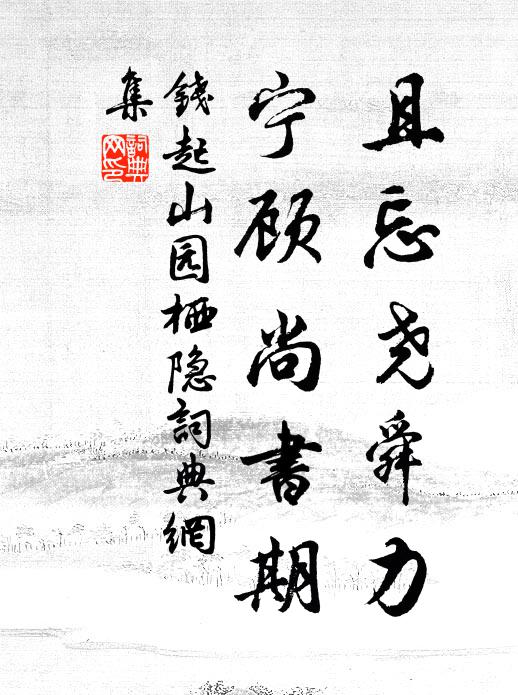 且忘尧舜力
宁顾尚书期
钱起山园栖隐詞典網
集
詞典
网印